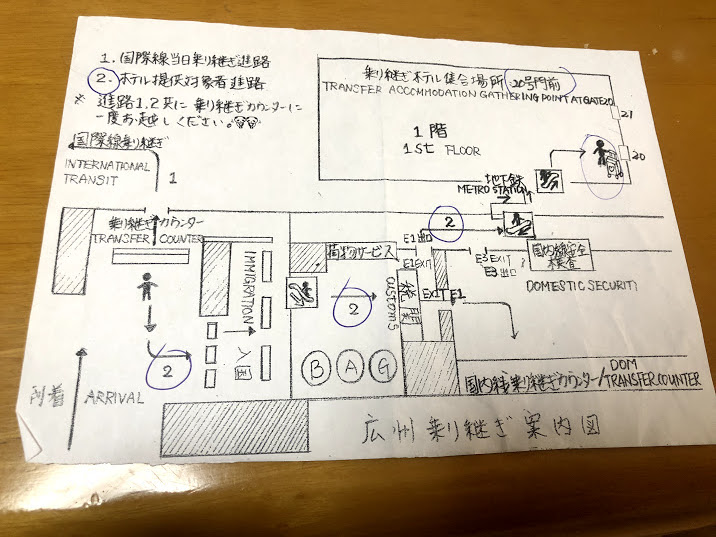 1. 国際線当日乗り継ぎ進路
2. ホテル提供対象者進路
* 進路1.2共に 乗り継ぎカウンターに
一度お越しください。
乗り継ぎホテル集合場所 20号門前
TRANSFER ACCOMMODATION GATHERING POINT AT GATE20
1階
1St FLOOR
21
20
地下鉄
METRO STATION
国際線乗り継ぎ
INTERNATIONAL
TRANSIT
1
乗り継ぎカウンター
TRANSFER COUNTER
IMMIGRATION
入国
2
荷物サービス
2
B A G
CUSTOMS
税関
E1出口
E1EXIT
EXIT E1
2
E3EXIT
E3出口
国内線安全
検査
DOMESTIC SECURITY
国内線乗り継ぎカウンター/DOM
TRANSFER COUNTER
到着 ARRIVAL
広州乗り継ぎ案内図